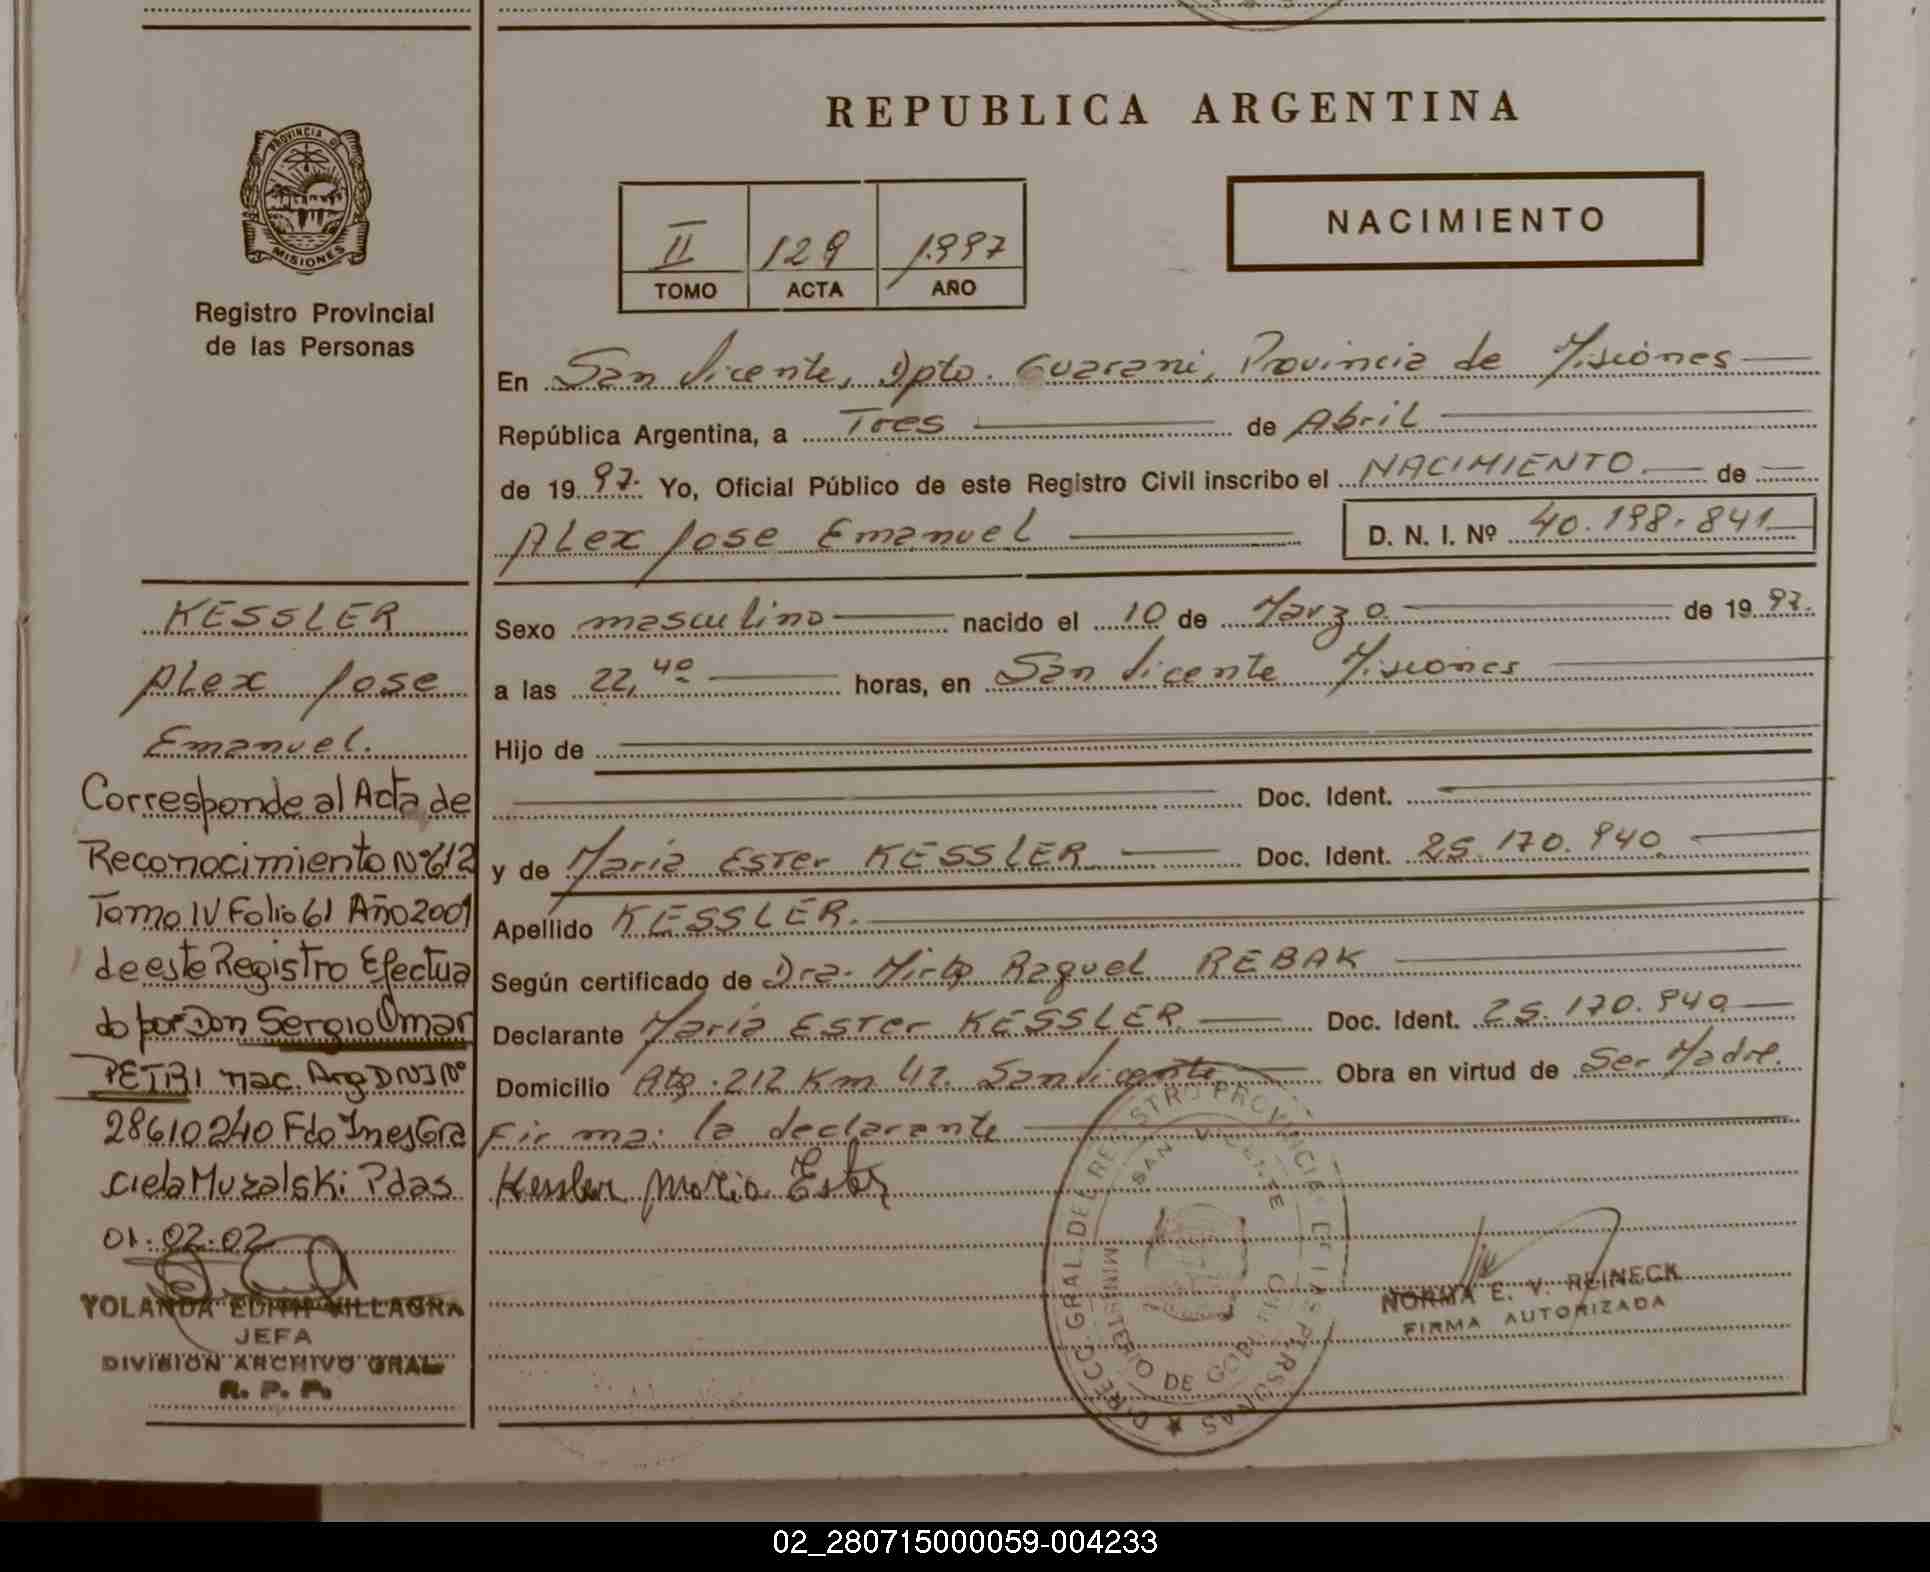 REPUBLICA ARGENTINA
PROVINCIA DE
MISIONES
Registro Provincial
de las Personas
II 129 1997
TOMO ACTA AÑO
NACIMIENTO
En San Vicente, Dpto. Guarani, Provincia de Misiones
República Argentina, a Tres de Abril
de 1997. Yo, Oficial Público de este Registro Civil inscribo el NACIMIENTO de
Alex Jose Emanuel D. N. I. Nº 40.198.841
Sexo masculino nacido el 10 de Marzo de 1997.
a las 22,40 horas, en San Vicente Misiones
Hijo de
Doc. Ident.
y de Maria Ester KESSLER Doc. Ident. 25.170.940
Apellido KESSLER.
Según certificado de Dra. Mirta Raquel REBAK
Declarante Maria Ester KESSLER Doc. Ident. 25.170.940
Domicilio Ruta 212 Km 42. San Vicente Obra en virtud de Ser Madre.
Firma: la declarante
Kessler Maria Ester
NORMA E. V. REINECK
FIRMA AUTORIZADA
KESSLER
Alex Jose
Emanuel.
Corresponde al Acta de
Reconocimiento Nº612
Tomo IV Folio 61 Año 2001
de este Registro Efectua
do por Don Sergio Omar
PETRI nac. Arg DNI Nº
28610240 Fdo Ines Gra
ciela Muzalski Pdas
01.02.02
YOLANDA EDITH VILLAGRA
JEFA
DIVISION ARCHIVO GRAL
R. P. P.
DIRECC. GRAL. DEL REGISTRO PROVINCIAL DE LAS PERSONAS
SAN VICENTE
MINISTERIO DE GOBIERNO
02_280715000059-004233